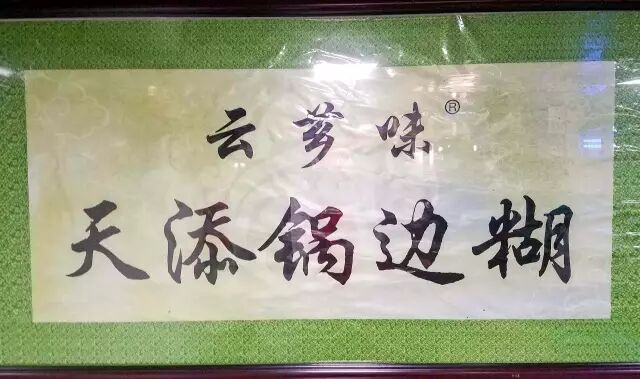 云萝味®
天添锅边糊